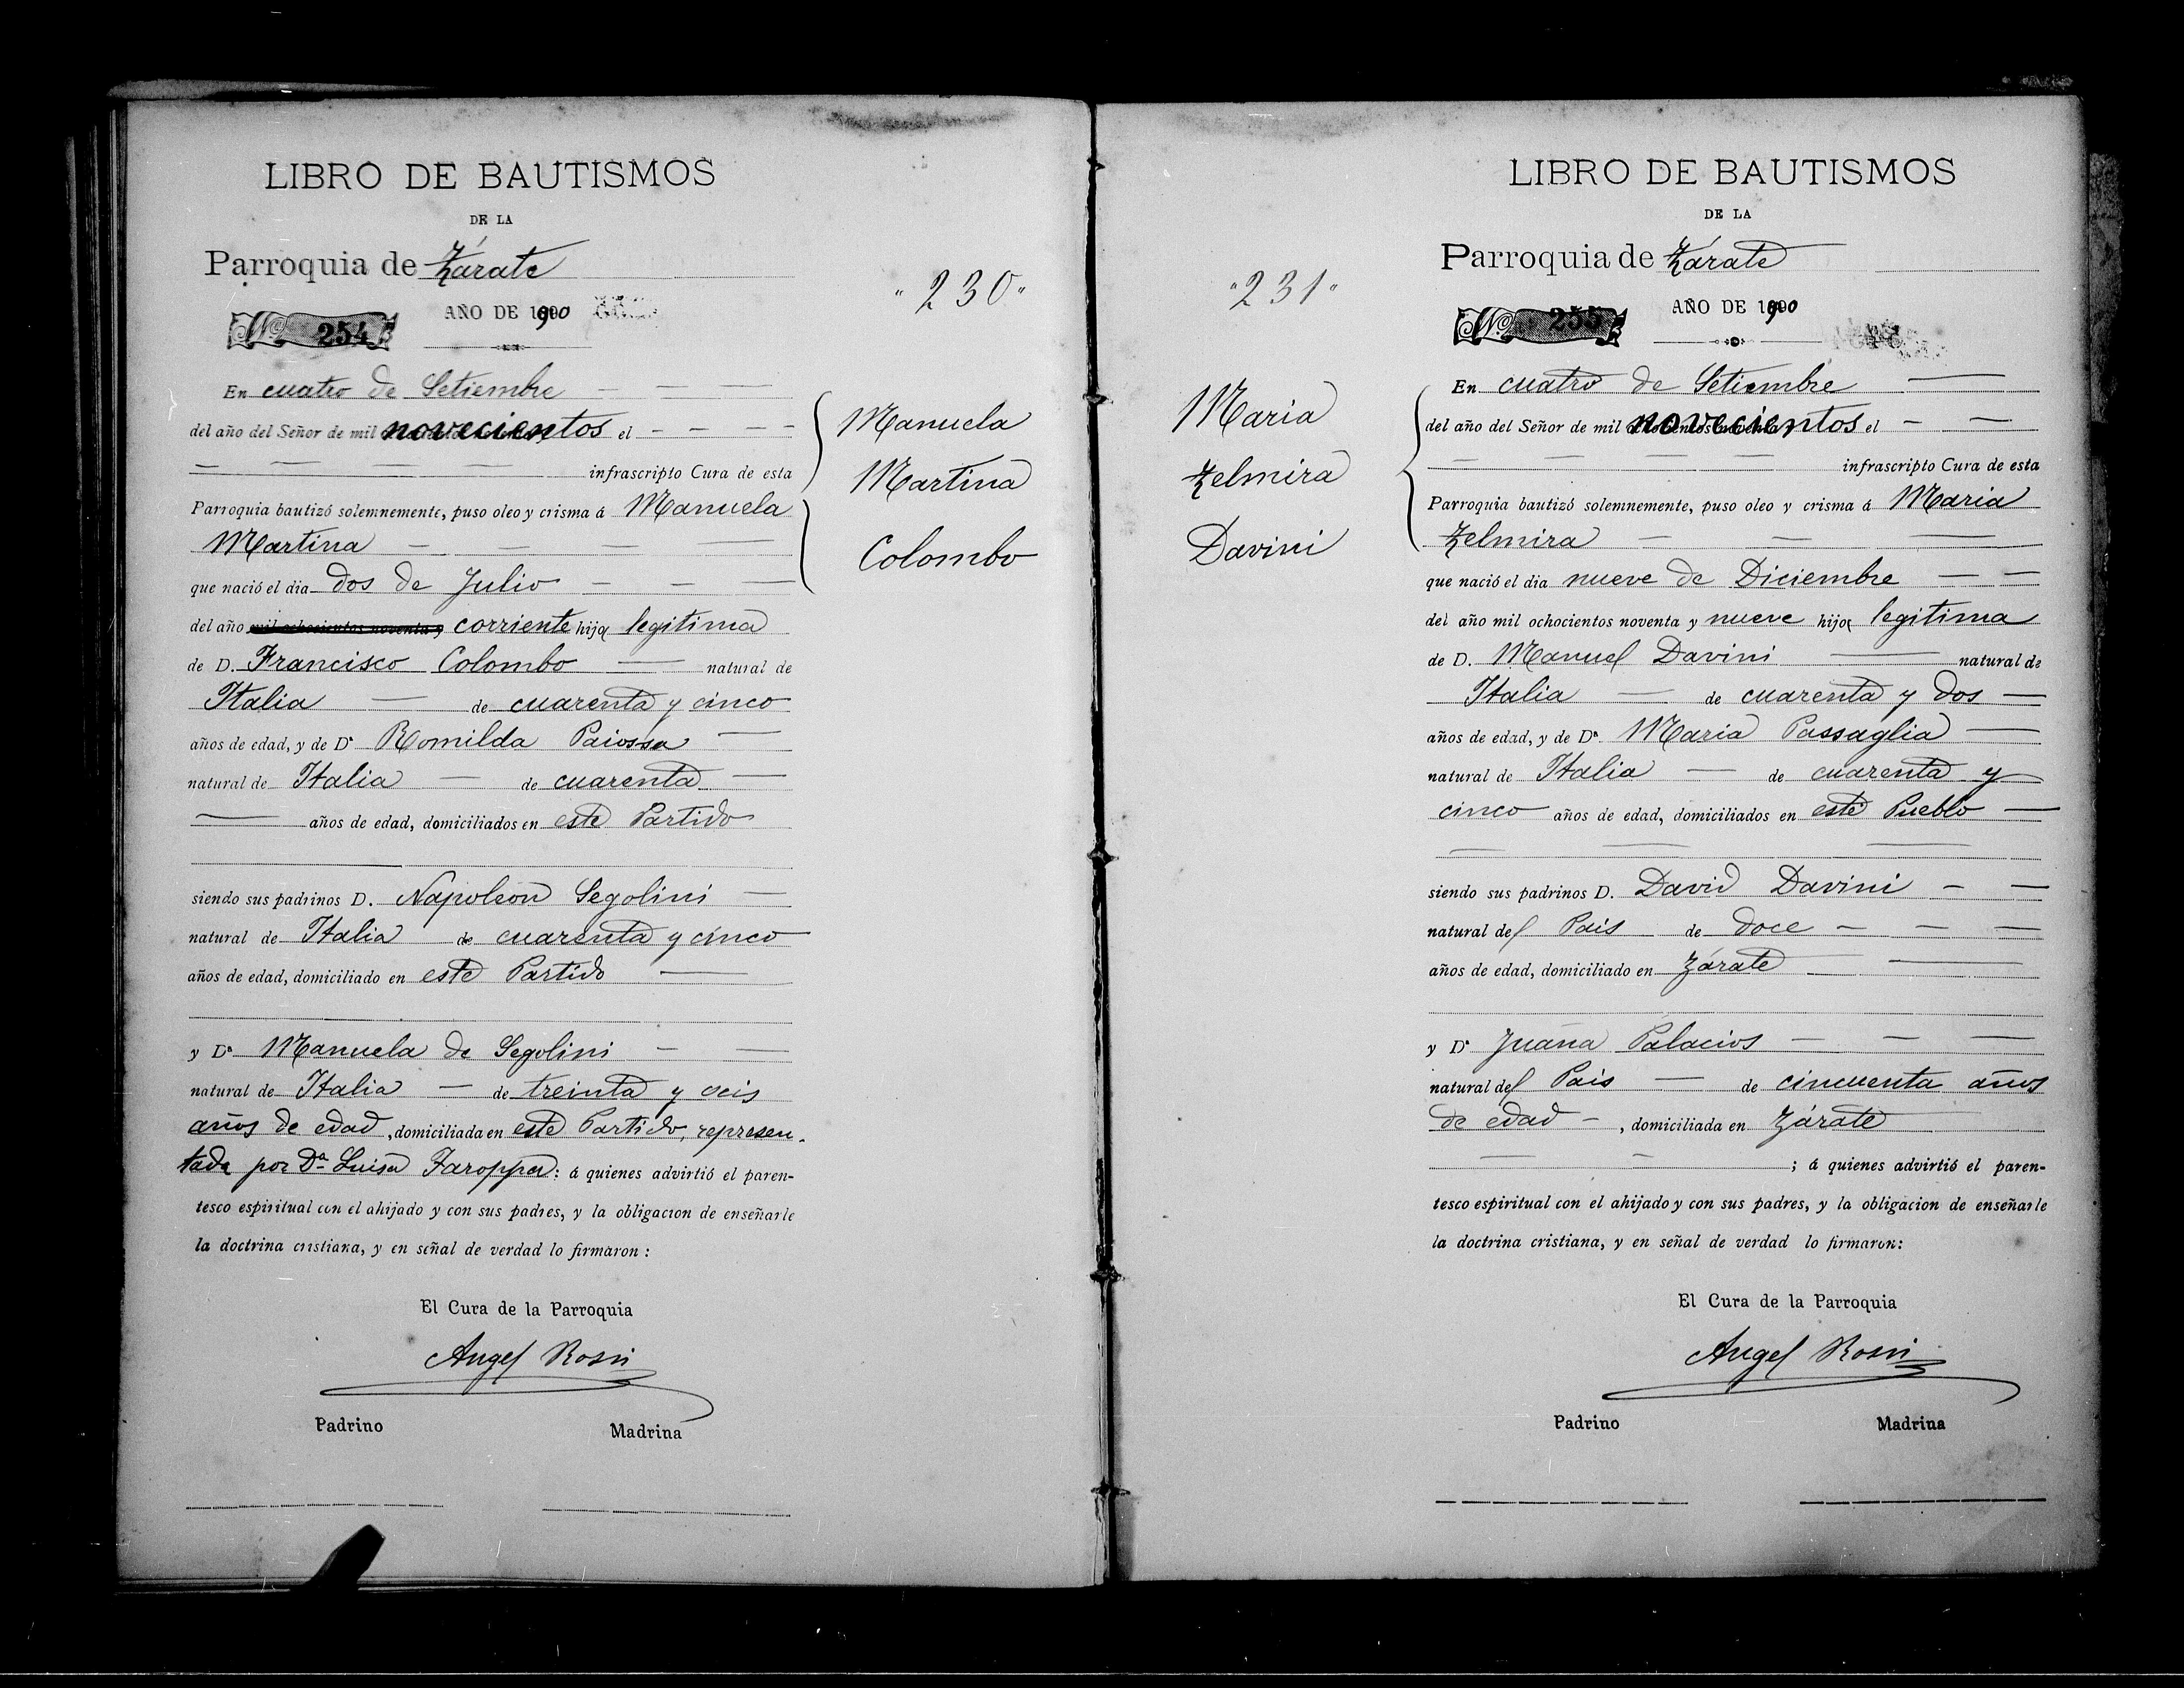 LIBRO DE BAUTISMOS
DE LA
Parroquia de Zárate
AÑO DE 1900
Nº 254
"230"
En cuatro de Setiembre
del año del Señor de mil novecientos el
infrascripto Cura de esta
Parroquia bautizó solemnemente, puso oleo y crisma á Manuela
Martina
que nació el dia dos de Julio
del año mil ochocientos noventa y corriente hija legitima
de D. Francisco Colombo natural de
Italia de cuarenta y cinco
años de edad, y de Dª Romilda Paiossa
natural de Italia de cuarenta
años de edad, domiciliados en este Partido
siendo sus padrinos D. Napoleon Segolini
natural de Italia de cuarenta y cinco
años de edad, domiciliado en este Partido
y Dª Manuela de Segolini
natural de Italia de treinta y seis
años de edad, domiciliada en este Partido, represen-
tada por Dª Luisa Faroppa: á quienes advirtió el paren-
tesco espiritual con el ahijado y con sus padres, y la obligacion de enseñarle
la doctrina cristiana, y en señal de verdad lo firmaron:
El Cura de la Parroquia
Angel Rossi
Padrino Madrina
Manuela
Martina
Colombo
LIBRO DE BAUTISMOS
DE LA
Parroquia de Zárate
AÑO DE 1900
Nº 255
"231"
Maria
Zelmira
Davini
En cuatro de Setiembre
del año del Señor de mil novecientos el
infrascripto Cura de esta
Parroquia bautizó solemnemente, puso oleo y crisma á Maria
Zelmira
que nació el dia nueve de Diciembre
del año mil ochocientos noventa y nueve hija legitima
de D. Manuel Davini natural de
Italia de cuarenta y dos
años de edad, y de Dª Maria Passaglia
natural de Italia de cuarenta y
cinco años de edad, domiciliados en este Pueblo
siendo sus padrinos D. David Davini
natural del Pais de doce
años de edad, domiciliado en Zárate
y Dª Juana Palacios
natural del Pais de cincuenta años
de edad, domiciliada en Zárate
; á quienes advirtió el paren-
tesco espiritual con el ahijado y con sus padres, y la obligacion de enseñarle
la doctrina cristiana, y en señal de verdad lo firmaron:
El Cura de la Parroquia
Angel Rossi
Padrino Madrina